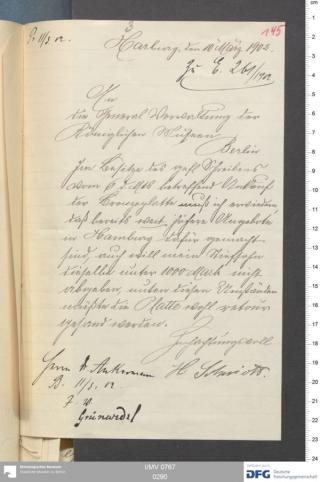 3
145
Pr. 11/3 02.
Harburg, den 10 März 1902.
Zu E. 261/1902
An
die General Verwaltung der
Königlichen Museen
Berlin
Im Besitze des gefl. Schreibens
vom 6. d. Mts betreffend Ankauf
der Bronzeplatte muß ich erwidern
daß bereits weit höhere Angebote
in Hamburg dafür gemacht
sind, auch will mein
dieselbe unter 1000 Mark nicht
abgeben, unter diesen Umständen
müßte die Platte wohl retour
gesandt werden.
Hochachtungsvoll
H. Schmidt.
Herrn Dr. Ankermann
B. 11/3. 02.
Grünwedel
Ethnologisches Museum
Staatliche Museen zu Berlin
I/MV 0767
0290
DFG
Deutsche
Forschungsgemeinschaft